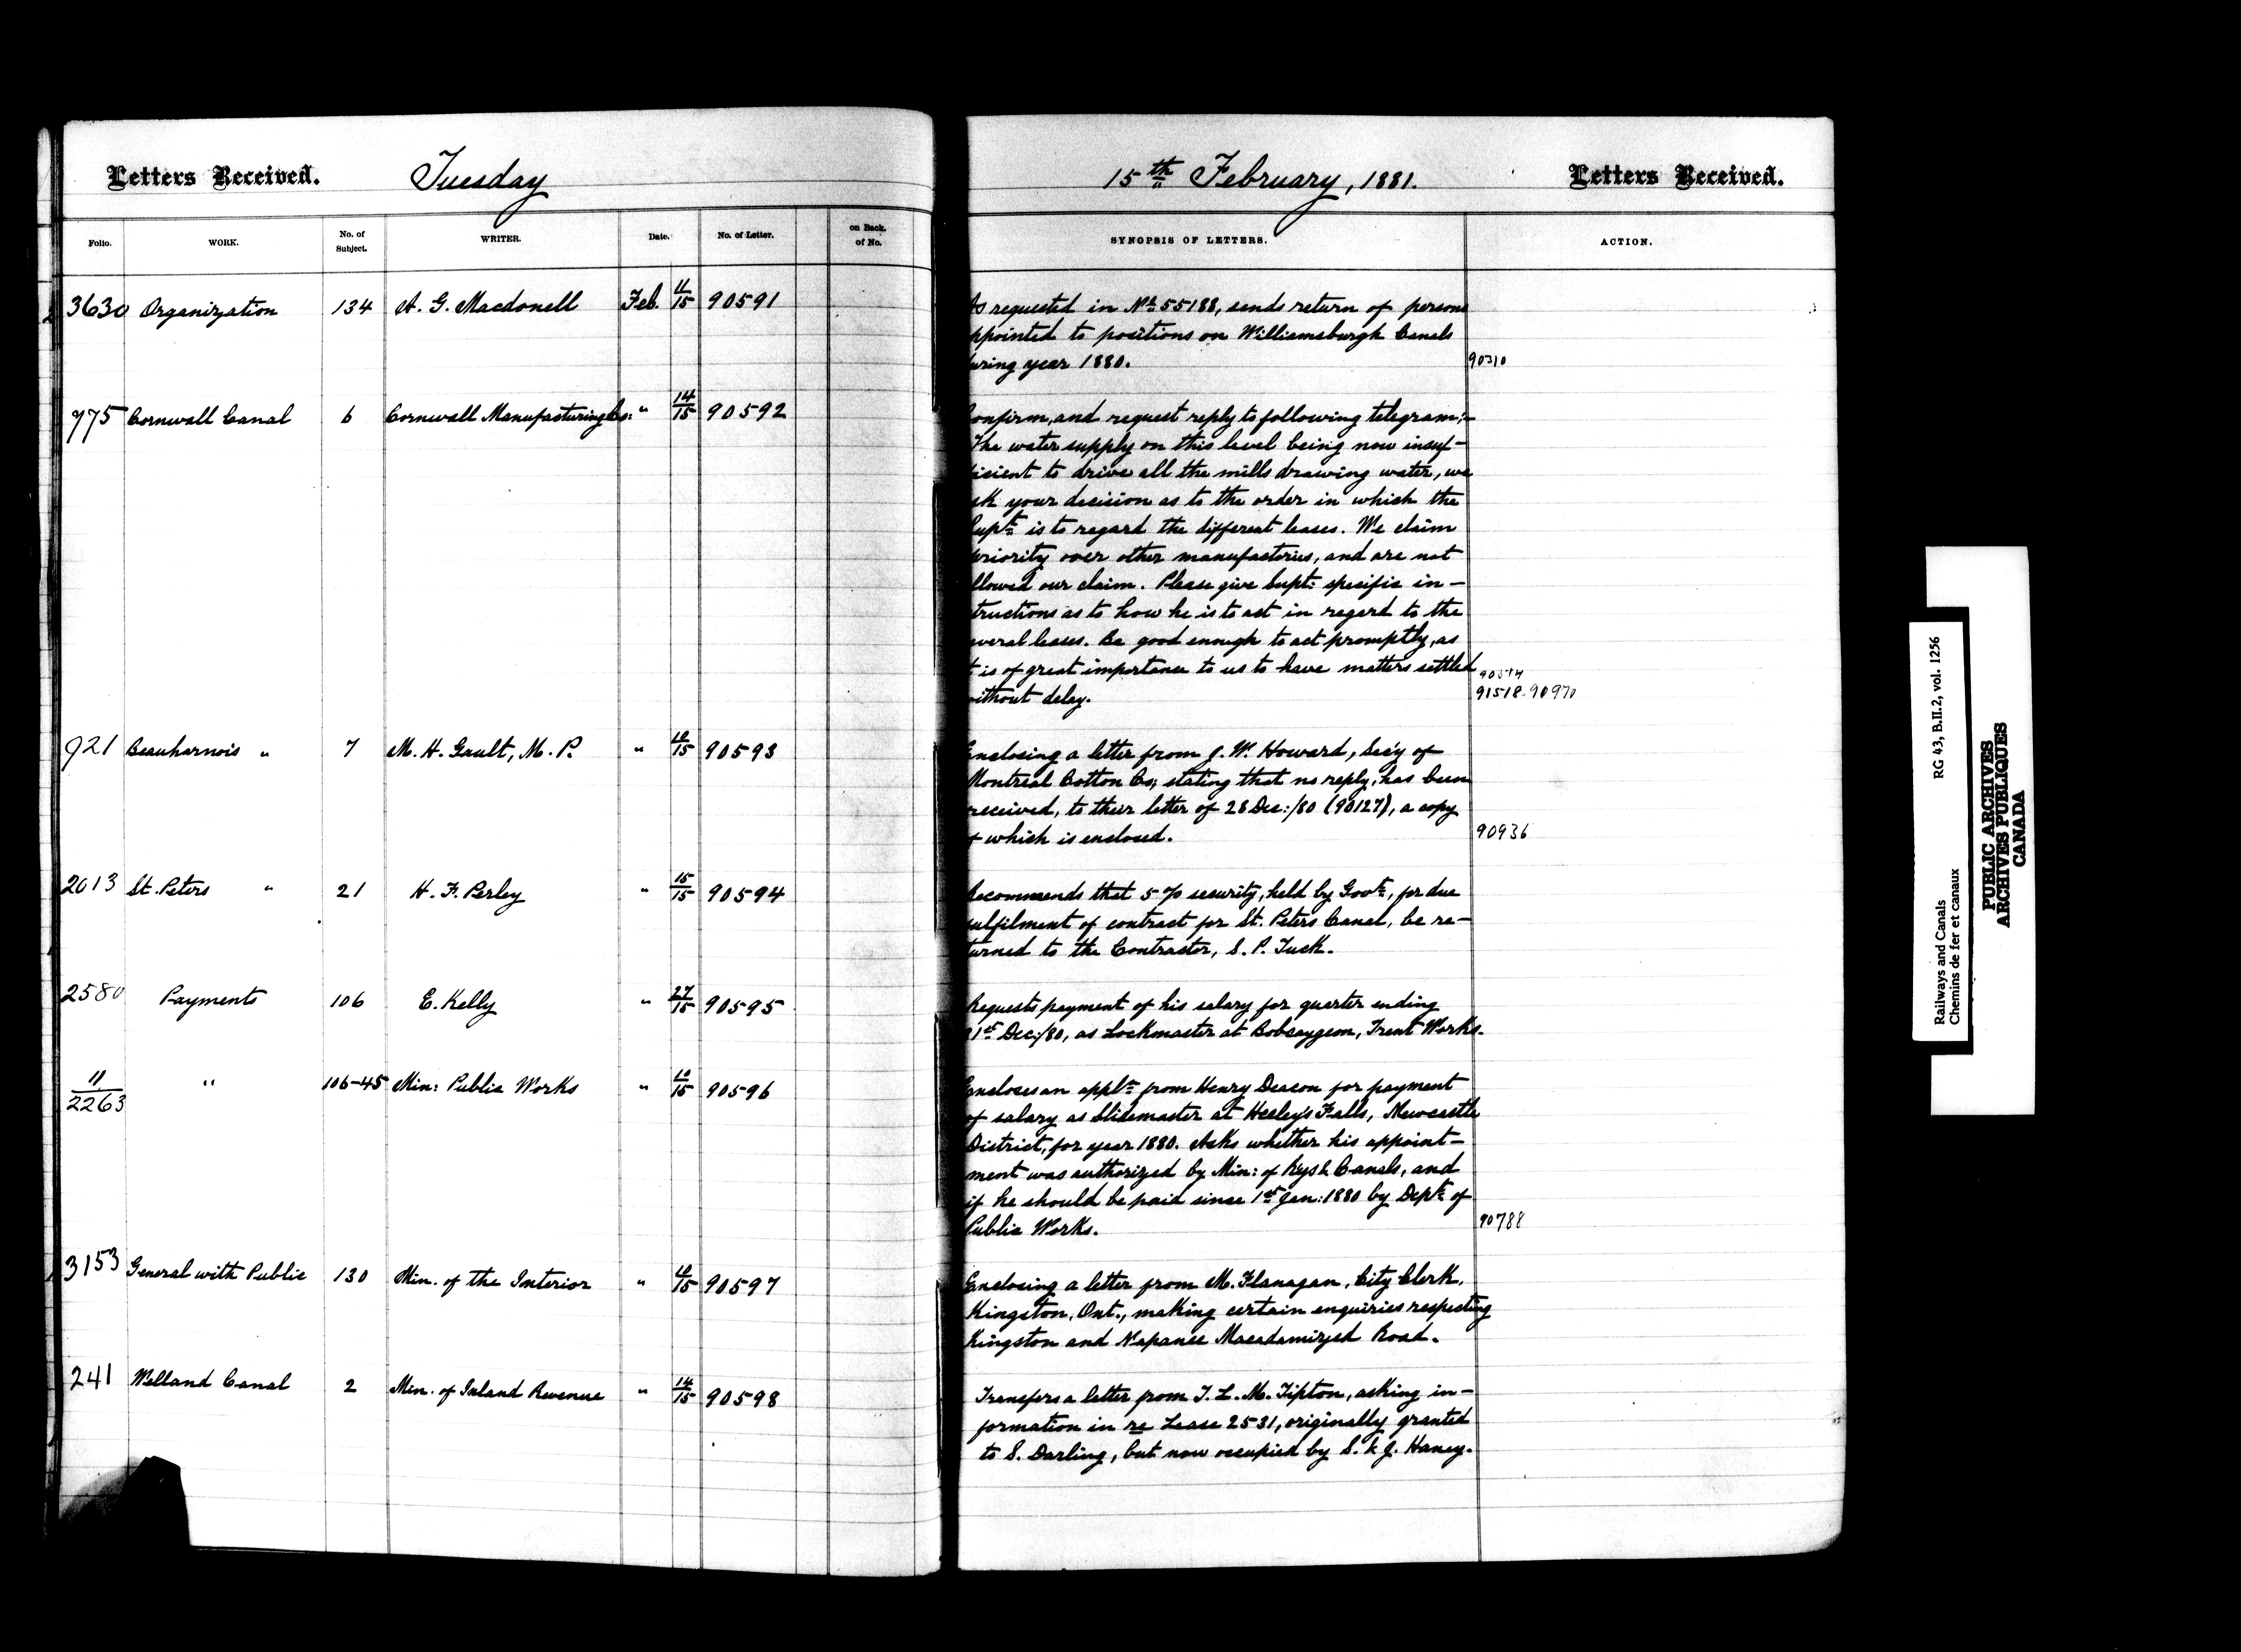 Letters Received. Tuesday
Folio. WORK. No. of Subject. WRITER. Date. No. of Letter. on Back. of No.
3630 Organization 134 A. G. Macdonell Feb. 11/15 90591
775 Cornwall Canal 6 Cornwall Manufacturing Co: " 14/15 90592
921 Beauharnois " 7 M. H. Gault, M. P. " 12/15 90593
2013 St. Peters " 21 H. F. Perley " 15/15 90594
2580 Payments 106 E. Kelly " 27/15 90595
11/2263 " 106-45 Min: Public Works " 10/15 90596
3153 General with Public 130 Min. of the Interior " 12/15 90597
241 Welland Canal 2 Min. of Inland Revenue " 14/15 90598
15th February, 1881. Letters Received.
SYNOPSIS OF LETTERS. ACTION.
As requested in No 55188, sends return of persons
ppointed to positions on Williamsburgh Canals
uring year 1880. 90310
onfirm, and request reply to following telegram:—
The water supply on this level being now insuf-
ficient to drive all the mills drawing water, we
sk your decision as to the order in which the
Supt is to regard the different leases. We claim
priority over other manufactories, and are not
llowed our claim. Please give Supt: specific in-
tructions as to how he is to act in regard to the
everal leases. Be good enough to act promptly, as
t is of great importance to us to have matters settled 90514
without delay. 91518. 90970
Enclosing a letter from J. W. Howard, Sec'y of
Montreal Cotton Co; stating that no reply, has been
received, to their letter of 28 Dec:/80 (90127), a copy
of which is enclosed. 90936
Recommends that 5 % security, held by Govt, for due
fulfilment of contract for St. Peters Canal, be re-
turned to the Contractor, S. P. Tuck.
Requests payment of his salary for quarter ending
31st Dec/80, as Lockmaster at Bobcaygeon, Trent Works.
Encloses an appln from Henry Deacon for payment
of salary as Slidemaster at Heeley's Falls, Newcastle
District, for year 1880. Asks whether his appoint-
ment was authorized by Min: of Rys & Canals, and
if he should be paid since 1st Jan: 1880 by Dept of
Public Works. 90788
Enclosing a letter from M. Flanagan, City Clerk,
Kingston, Ont., making certain enquiries respecting
Kingston and Napanee Macadamized Road.
Transfers a letter from T. L. M. Tipton, asking in-
formation in re Lease 2531, originally granted
to S. Darling, but now occupied by S. & J. Haney.
RG 43, B.II.2, vol. 1256
Railways and Canals
Chemins de fer et canaux
PUBLIC ARCHIVES
ARCHIVES PUBLIQUES
CANADA